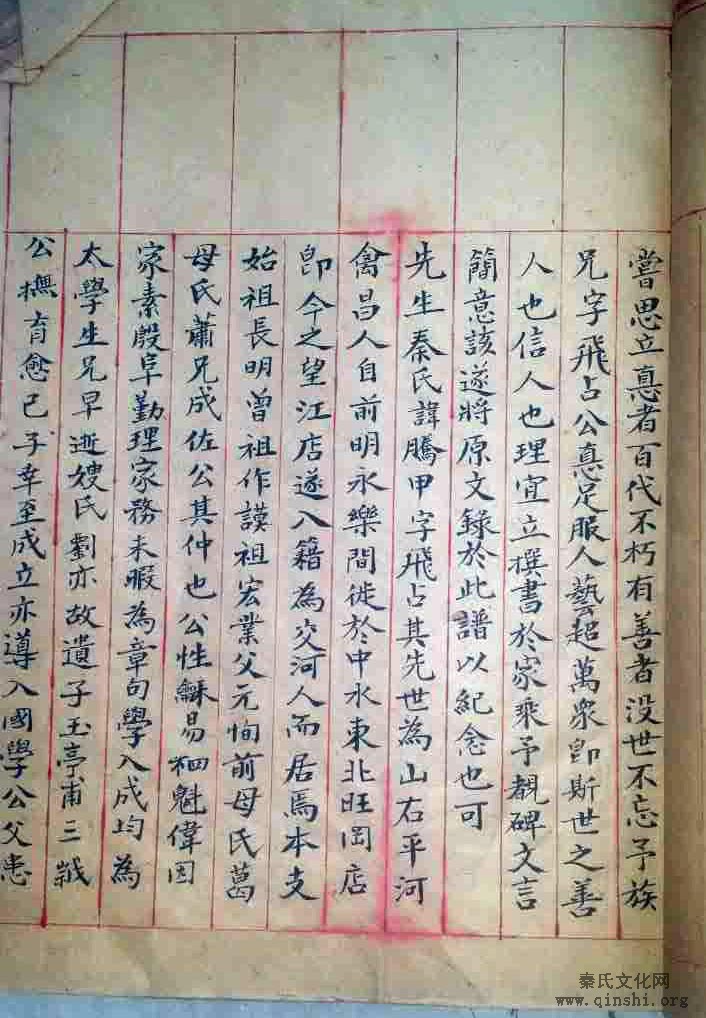 嘗思立惪者百代不朽有善者没世不忘予族
兄字飛占公惪足服人藝超萬衆卽斯世之善
人也信人也理宜立撰書於家乘予覩碑文言
簡意該遂將原文錄於此譜以紀念也可
先生秦氏諱騰甲字飛占其先世為山右平河
禽昌人自前明永樂間徙於中水東北旺岡店
卽今之望江店遂入籍為交河人而居焉本支
始祖長明曾祖作謨祖宏業父元恂前母氏葛
母氏蕭兄成佐公其仲也公性龢易裀魁偉因
家素殷阜勤理家務未暇為章句學入成均為
太學生兄早逝嫂氏劉亦故遺子玉亭甫三嵗
公撫育愈己子幸至成立亦導入國學公父患
秦氏文化网
www.qinshi.org